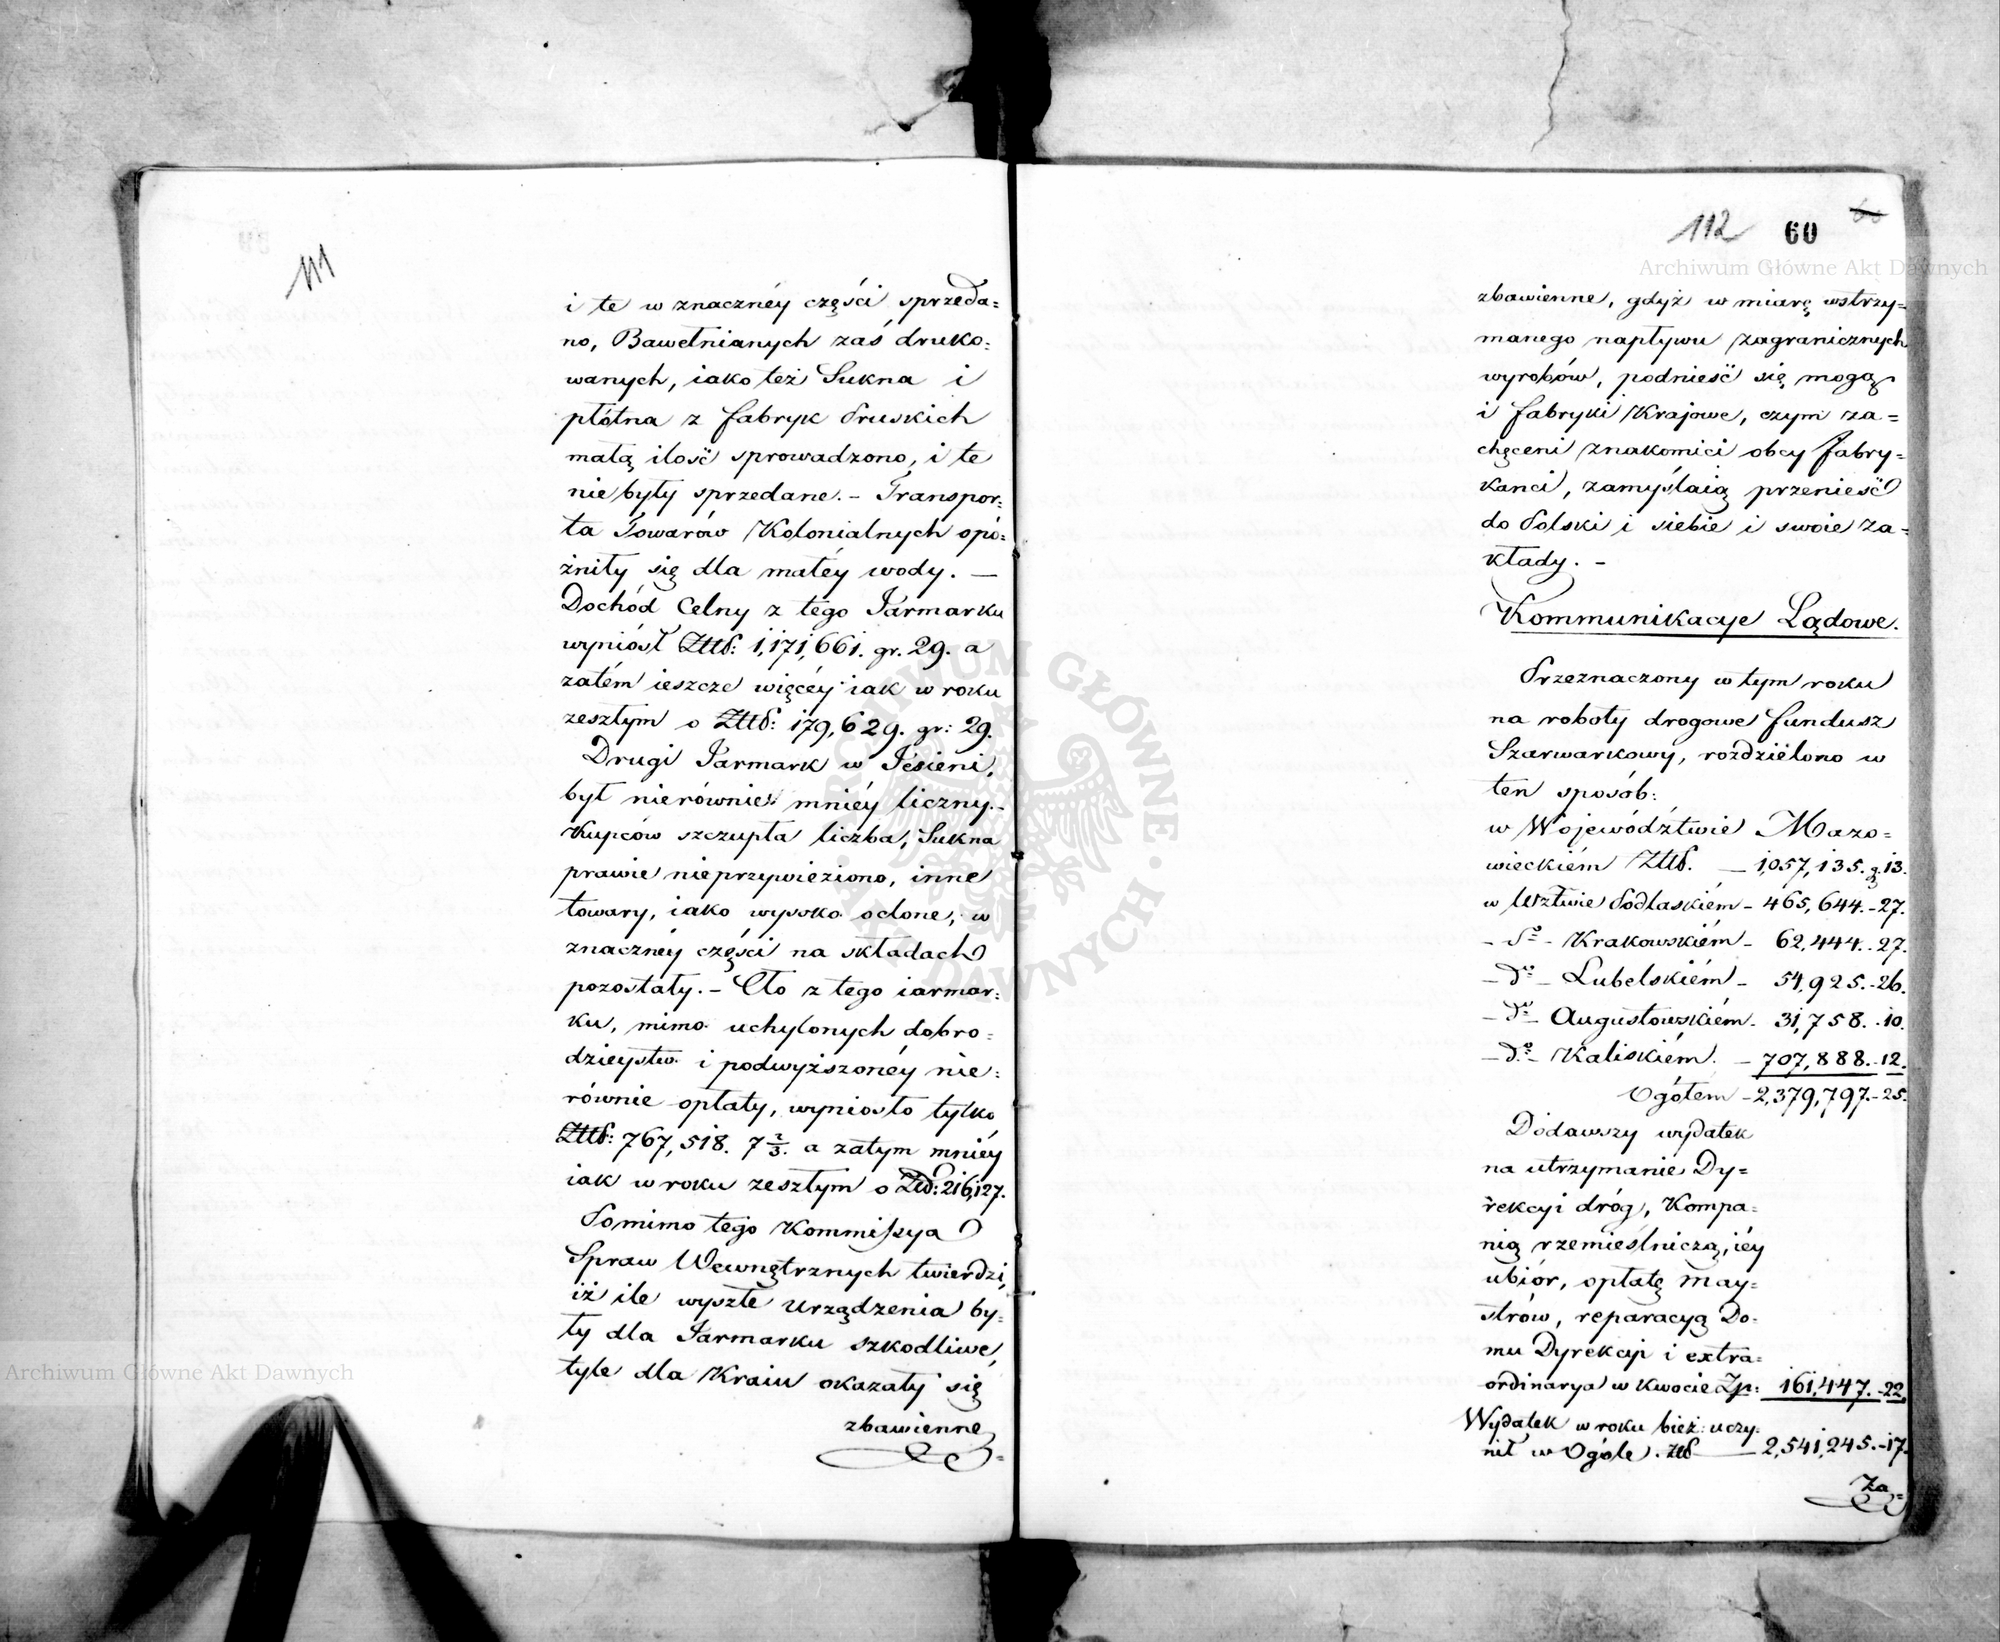 111
i te w znacznéy części sprzeda=
no, Bawełnianych zaś druko=
wanych, iako też Sukna i
płótna z fabryk Pruskich
małą ilość sprowadzono, i te
nie były sprzedane. – Transpor=
ta Towarów Kolonialnych opó=
źniły się dla małéy wody. —
Dochód Celny z tego Jarmarku
wyniósł Złtt: 1,171,661. gr. 29. a
zatém ieszcze więcéy iak w roku
zeszłym o Złtt: 179,629. gr: 29.
Drugi Jarmark w Jesieni,
był nierównie mniéy liczny. –
Kupców szczupła liczba, Sukna
prawie nieprzywieziono, inne
towary, iako wysoko oclone, w
znacznéy części na składach
pozostały. – Cło z tego iarmar=
ku, mimo uchylonych dobro=
dzieystw i podwyższonéy nie=
równie opłaty, wyniosło tylko
Złtt: 767,518. 7 2/3. a zatym mniéy
iak w roku zeszłym o Złt: 216,127.
Pomimo tego Kommissya
Spraw Wewnętrznych twierdzi,
iż ile wyszłe urządzenia by=
ły dla Jarmarku szkodliwe,
tyle dla Kraiu okazały się
zbawienne
112 60
zbawienne, gdyż w miarę wstrzy=
manego napływu zagranicznych
wyrobów, podnieść się mogą
i fabryki Krajowe, czym za=
chęceni znakomici obcy fabry=
kanci, zamyślaią przenieść
do Polski i siebie i swoie za=
kłady. –
Kommunikacye Lądowe.
Przeznaczony w tym roku
na roboty drogowe fundusz
Szarwarkowy, rozdzielono w
ten sposób:
w Województwie Mazo=
wieckiém Złtt. — 1,057,135. g. 13.
w Wsztwie Podlaskiém – 465,644. – 27.
– do – Krakowskiém – 62,444. – 27.
– do – Lubelskiém – 54,925. – 26.
– do – Augustowskiém – 31,758. – 10.
– do – Kaliskiém. – 707,888. – 12.
Ogółem – 2,379,797. – 25.
Dodawszy wydatek
na utrzymanie Dy=
rekcyi dróg, Kompa=
nią rzemieślniczą, iéy
ubiór, opłatę May=
strów, reparacyą Do=
mu Dyrekcyi i extra=
ordinarya w kwocie Zp: 161,447. – 22.
Wydatek w roku bież: uczy=
nił w Ogóle. Złt — 2,541,245. – 17.
Za=
Archiwum Główne Akt Dawnych
Archiwum Główne Akt Dawnych
ARCHIWUM GŁÓWNE AKT DAWNYCH